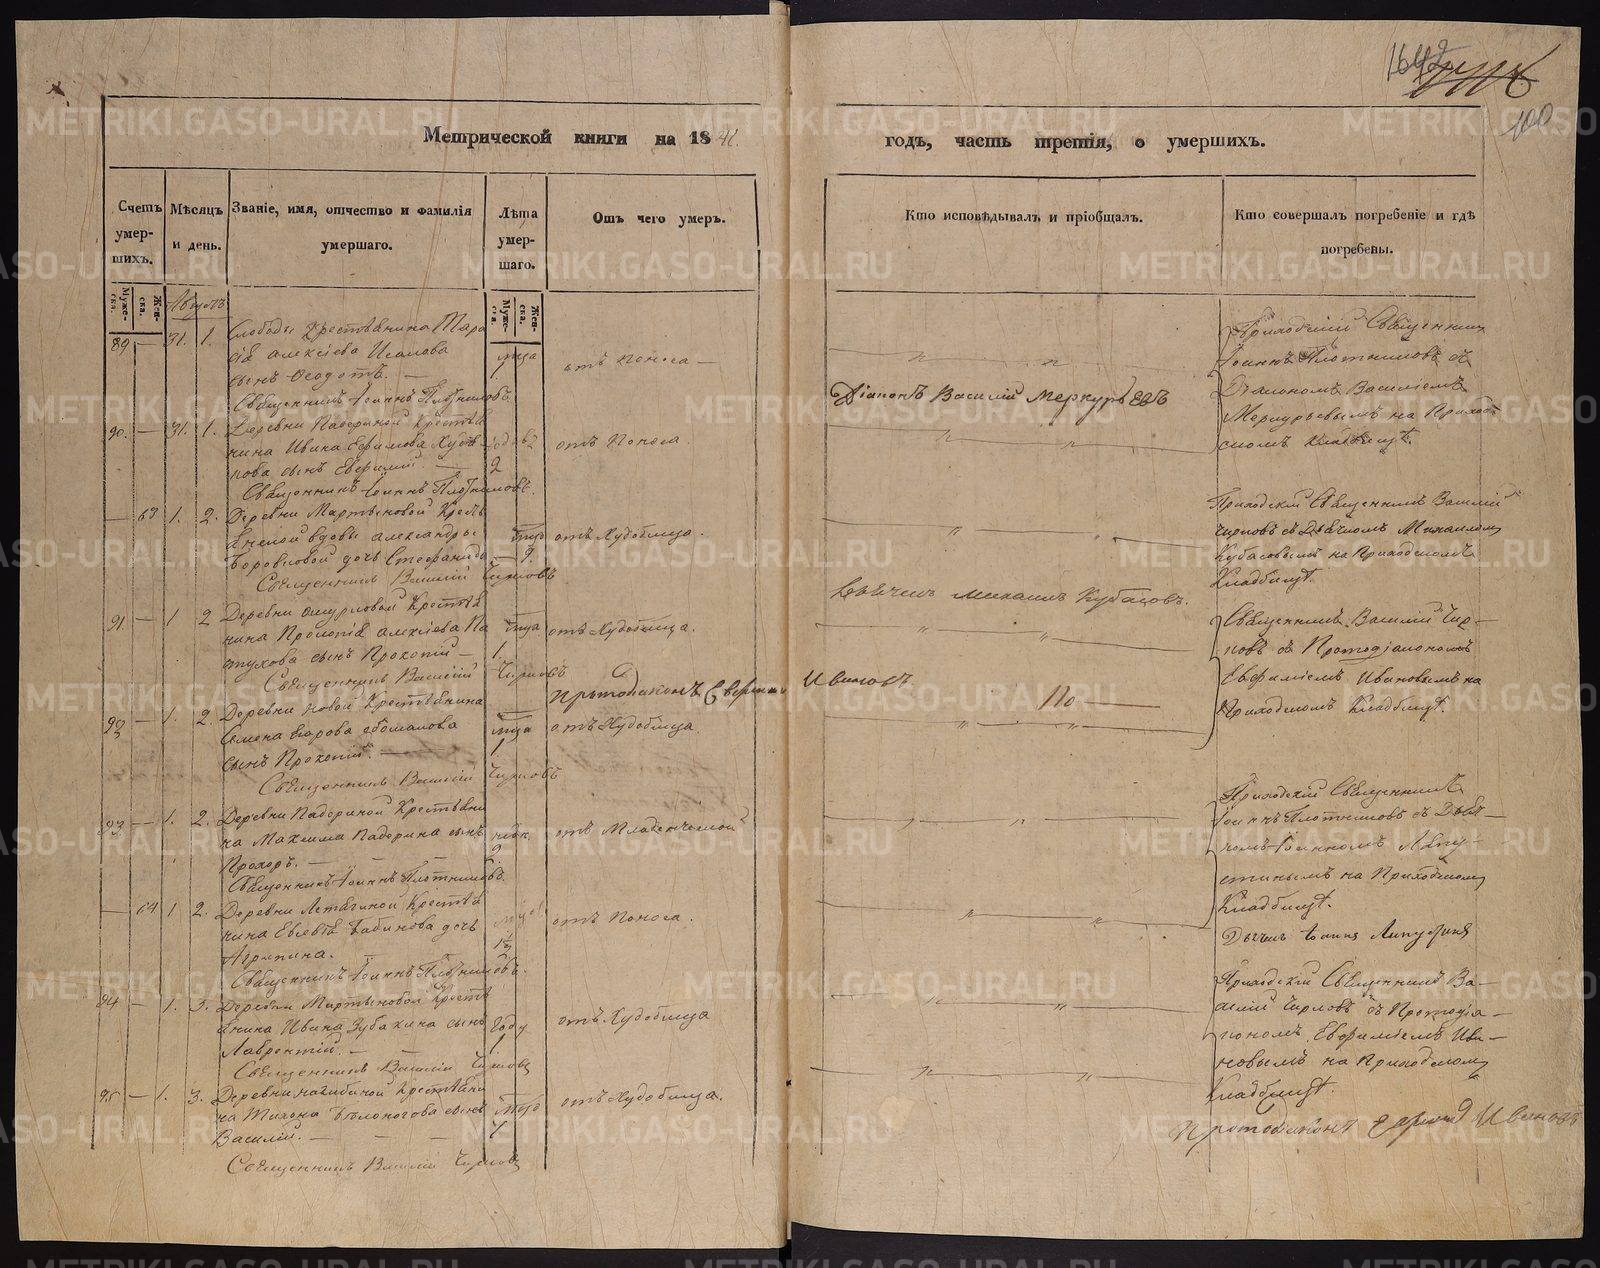 Метрической книги на 1841.
Счетъ умер-
шихъ.
Муже-
ска.
Жен-
ска.
Мѣсяцъ
и день.
Званіе, имя, отчество и фамилія
умершаго.
Лѣта
умер-
шаго.
Муже-
ска.
Жен-
ска.
Отъ чего умеръ.
Августъ
89 — 31. 1.
Слободы Крестьянина Тара
сія Алексѣева
сынъ Ѳеодотъ. —
отъ поноса —
Священникъ Іоаннъ Плотниковъ
90. — 31. 1.
Деревни Падериной Крестья
нина Ивана Ефимова
сынъ Евфимій. —
2
отъ поноса.
Священникъ Іоаннъ Плотниковъ.
— 63 1. 2.
Деревни Мартыновой Кресть
янской вдовы Александры
Боровиковой дочь Стефанида
отъ Худобища.
Священникъ Василій Чирковъ
91. — 1 2
Деревни Крестья
нина Прокопія Алексѣева Па
стухова сынъ Прокопій —
1.
отъ Худобища.
Священникъ Василій Чирковъ
Протодіаконъ Евфимій Ивановъ
92 — 1. 2.
Деревни Новой Крестьянина
Семена Егорова
сынъ Прокопій. —
отъ Худобища
Священникъ Василій Чирковъ
93. — 1. 2.
Деревни Падериной Крестьяни
на Максима Падерина сынъ
Прохоръ. —
отъ Младенческой
Священникъ Іоаннъ Плотниковъ.
— 64 1 2.
Деревни Крестья
нина Бабинова дочь
Агрипина. —
отъ поноса.
Священникъ Іоаннъ Плотниковъ.
94 — 1. 3.
Деревни Мартыновой Кресть
янина Ивана Зубакина сынъ
Лаврентій. —
году
отъ Худобища
Священникъ Василій Чирковъ
95 — 1. 3.
Деревни Нагибиной Крестьяни
на Тихона Бѣлоногова сынъ
Василій. —
отъ Худобища.
Священникъ Василій Чирковъ
1642
100
годъ, часть третія, о умершихъ.
Кто исповѣдывалъ и пріобщалъ.
Кто совершалъ погребеніе и гдѣ
погребены.
Діаконъ Василій Меркурьевъ
Дьячекъ Михаилъ Кубасовъ.
По
Приходскій Священникъ
Іоаннъ Плотниковъ съ
Діакономъ Василіемъ
Меркурьевымъ на Приход
скомъ Кладбищѣ.
Приходскій Священникъ Василій
Чирковъ съ Дьячкомъ Михаиломъ
Кубасовымъ на Приходскомъ
Кладбищѣ.
Священникъ Василій Чир—
ковъ съ Протодіакономъ
Евфиміемъ Ивановымъ на
Приходскомъ Кладбищѣ.
Приходскій Священникъ
Іоаннъ Плотниковъ съ Дьяч—
комъ Іоанномъ Липу—
стинымъ на Приходскомъ
Кладбищѣ.
Дьячекъ Іоаннъ Липустинъ
Приходскій Священникъ Ва—
силій Чирковъ съ Протодіа—
кономъ Евфиміемъ Ива—
новымъ на Приходскомъ
Кладбищѣ.
Протодіаконъ Ивановъ
METRIKI.GASO-URAL.RU